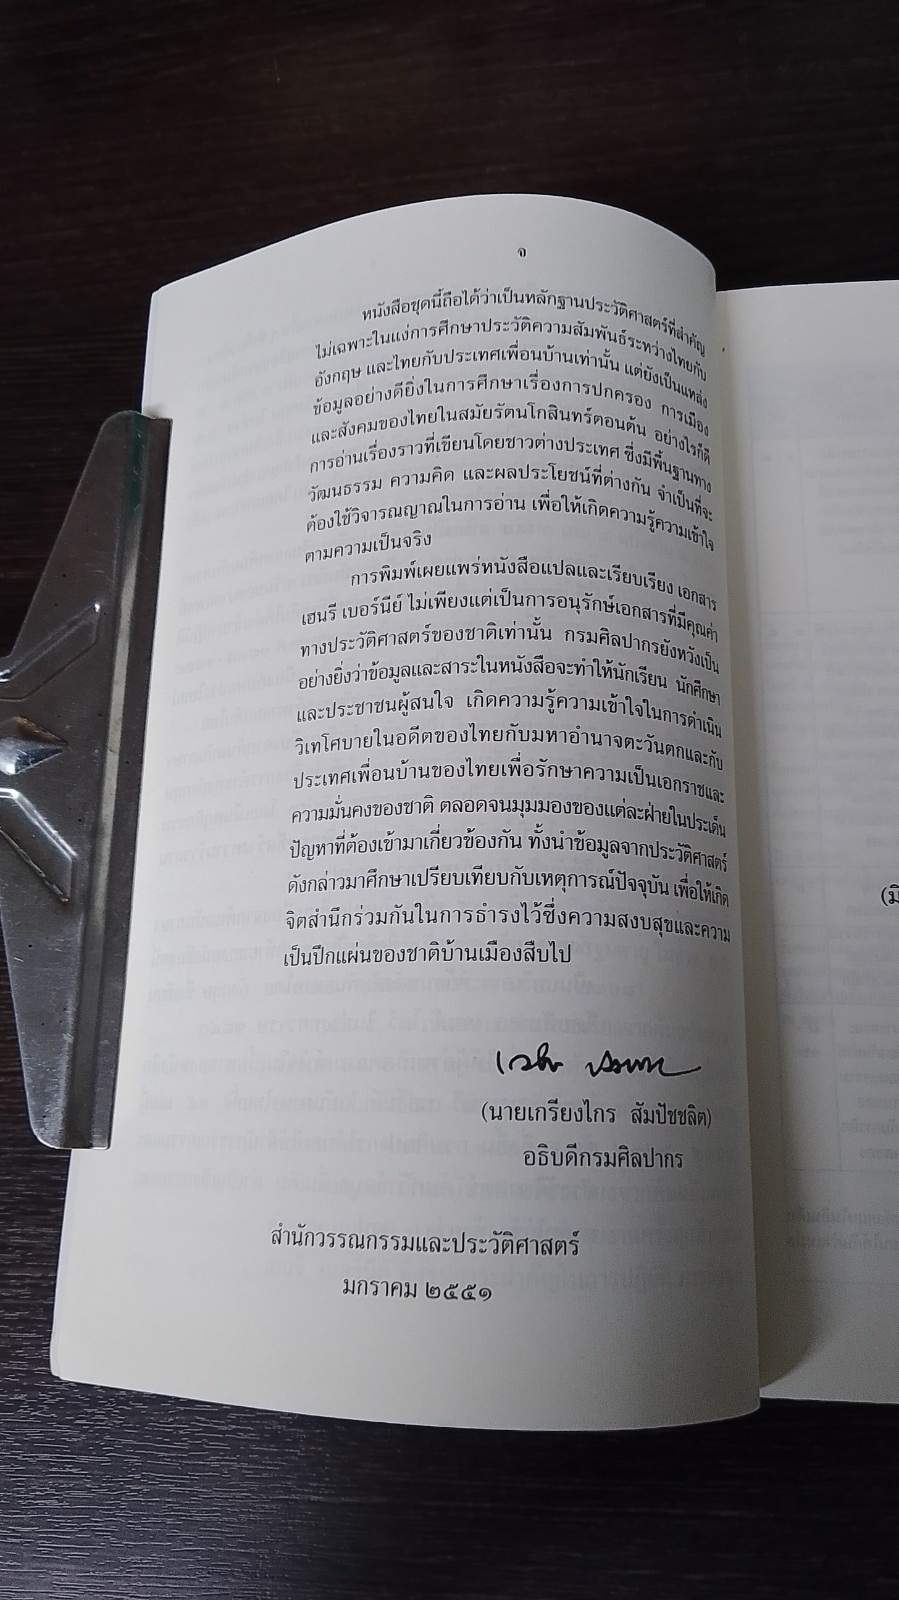 จ
หนังสือชุดนี้ถือได้ว่าเป็นหลักฐานประวัติศาสตร์ที่สำคัญ
ไม่เฉพาะในแง่การศึกษาประวัติความสัมพันธ์ระหว่างไทยกับ
อังกฤษ และไทยกับประเทศเพื่อนบ้านเท่านั้น แต่ยังเป็นแหล่ง
ข้อมูลอย่างดียิ่งในการศึกษาเรื่องการปกครอง การเมือง
และสังคมของไทยในสมัยรัตนโกสินทร์ตอนต้น อย่างไรก็ดี
การอ่านเรื่องราวที่เขียนโดยชาวต่างประเทศ ซึ่งมีพื้นฐานทาง
วัฒนธรรม ความคิด และผลประโยชน์ที่ต่างกัน จำเป็นที่จะ
ต้องใช้วิจารณญาณในการอ่าน เพื่อให้เกิดความรู้ความเข้าใจ
ตามความเป็นจริง
การพิมพ์เผยแพร่หนังสือแปลและเรียบเรียง เอกสาร
เฮนรี เบอร์นีย์ ไม่เพียงแต่เป็นการอนุรักษ์เอกสารที่มีคุณค่า
ทางประวัติศาสตร์ของชาติเท่านั้น กรมศิลปากรยังหวังเป็น
อย่างยิ่งว่าข้อมูลและสาระในหนังสือจะทำให้นักเรียน นักศึกษา
และประชาชนผู้สนใจ เกิดความรู้ความเข้าใจในการดำเนิน
วิเทโศบายในอดีตของไทยกับมหาอำนาจตะวันตกและกับ
ประเทศเพื่อนบ้านของไทยเพื่อรักษาความเป็นเอกราชและ
ความมั่นคงของชาติ ตลอดจนมุมมองของแต่ละฝ่ายในประเด็น
ปัญหาที่ต้องเข้ามาเกี่ยวข้องกัน ทั้งนำข้อมูลจากประวัติศาสตร์
ดังกล่าวมาศึกษาเปรียบเทียบกับเหตุการณ์ปัจจุบัน เพื่อให้เกิด
จิตสำนึกร่วมกันในการธำรงไว้ซึ่งความสงบสุขและความ
เป็นปึกแผ่นของชาติบ้านเมืองสืบไป
(นายเกรียงไกร สัมปัชชลิต)
อธิบดีกรมศิลปากร
สำนักวรรณกรรมและประวัติศาสตร์
มกราคม ๒๕๕๑